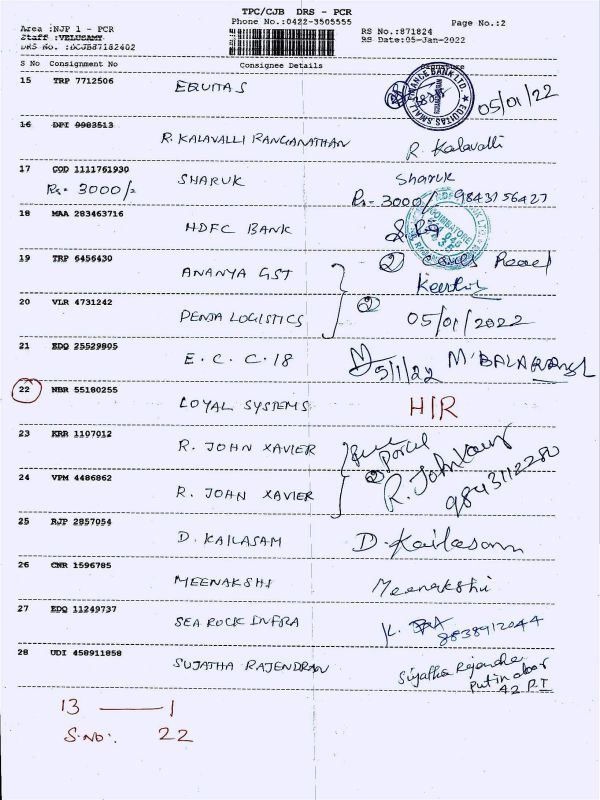 TPC/CJB DRS - PCR
Phone No.:0422-3505555
Page No.:2
Area :NJP 1 - PCR
Staff :VELUSAMY
DRS No. :DCJB87182402
RS No.:871824
RS Date:05-Jan-2022
S No Consignment No Consignee Details Signature
15 TRP 7712506 EQUITAS 05/01/22
EQUITAS SMALL FINANCE BANK LTD.
16 DPI 9983513 R. KALAVALLI RANGANATHAN R. Kalavalli
17 COD 1111761930 SHARUK Sharuk
Rs. 3000/- Rs- 3000/- 9843156427
18 MAA 283463716 HDFC BANK
COIMBATORE
19 TRP 6456430 ANANYA GST
20 VLR 4731242 PENTA LOGISTICS 05/01/2022
21 EDQ 25529805 E.C.C.18 5/1/22
22 NBR 55180255 LOYAL SYSTEMS H/R
23 KRR 1107012 R. JOHN XAVIER
24 VPM 4486862 R. JOHN XAVIER 9843112280
25 RJP 2857054 D. KAILASAM D. Kailasam
26 CNR 1596785 MEENAKSHI Meenakshi
27 EDQ 11249737 SEA ROCK INFRA 9838912044
28 UDI 458911858 SUJATHA RAJENDRAN Sujatha
13 — 1
S.NO: 22